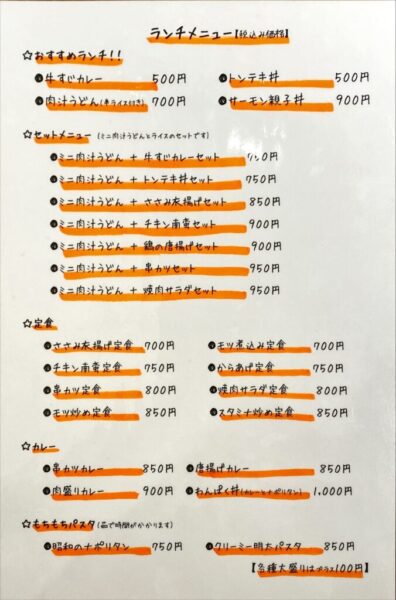 ランチメニュー【税込み価格】
☆おすすめランチ！！
●牛すじカレー 500円 ●トンテキ丼 500円
●肉汁うどん(半ライス付き) 700円 ●サーモン親子丼 900円
☆セットメニュー (ミニ肉汁うどんとライスのセットです)
●ミニ肉汁うどん + 牛すじカレーセット
●ミニ肉汁うどん + トンテキ丼セット 750円
●ミニ肉汁うどん + ささみ灰揚げセット 850円
●ミニ肉汁うどん + チキン南蛮セット 900円
●ミニ肉汁うどん + 鶏の唐揚げセット 900円
●ミニ肉汁うどん + 串カツセット 950円
●ミニ肉汁うどん + 焼肉サラダセット 950円
☆定食
●ささみ灰揚げ定食 700円 ●モツ煮込み定食 700円
●チキン南蛮定食 750円 ●からあげ定食 750円
●串カツ定食 800円 ●焼肉サラダ定食 800円
●モツ炒め定食 850円 ●スタミナ炒め定食 850円
☆カレー
●串カツカレー 850円 ●唐揚げカレー 850円
●肉盛りカレー 900円 ●わんぱく丼(カレーとナポリタン) 1,000円
☆もちもちパスタ (茹で時間がかかります)
●昭和のナポリタン 750円 ●クリーミー明太パスタ 850円
【各種大盛りはプラス100円】